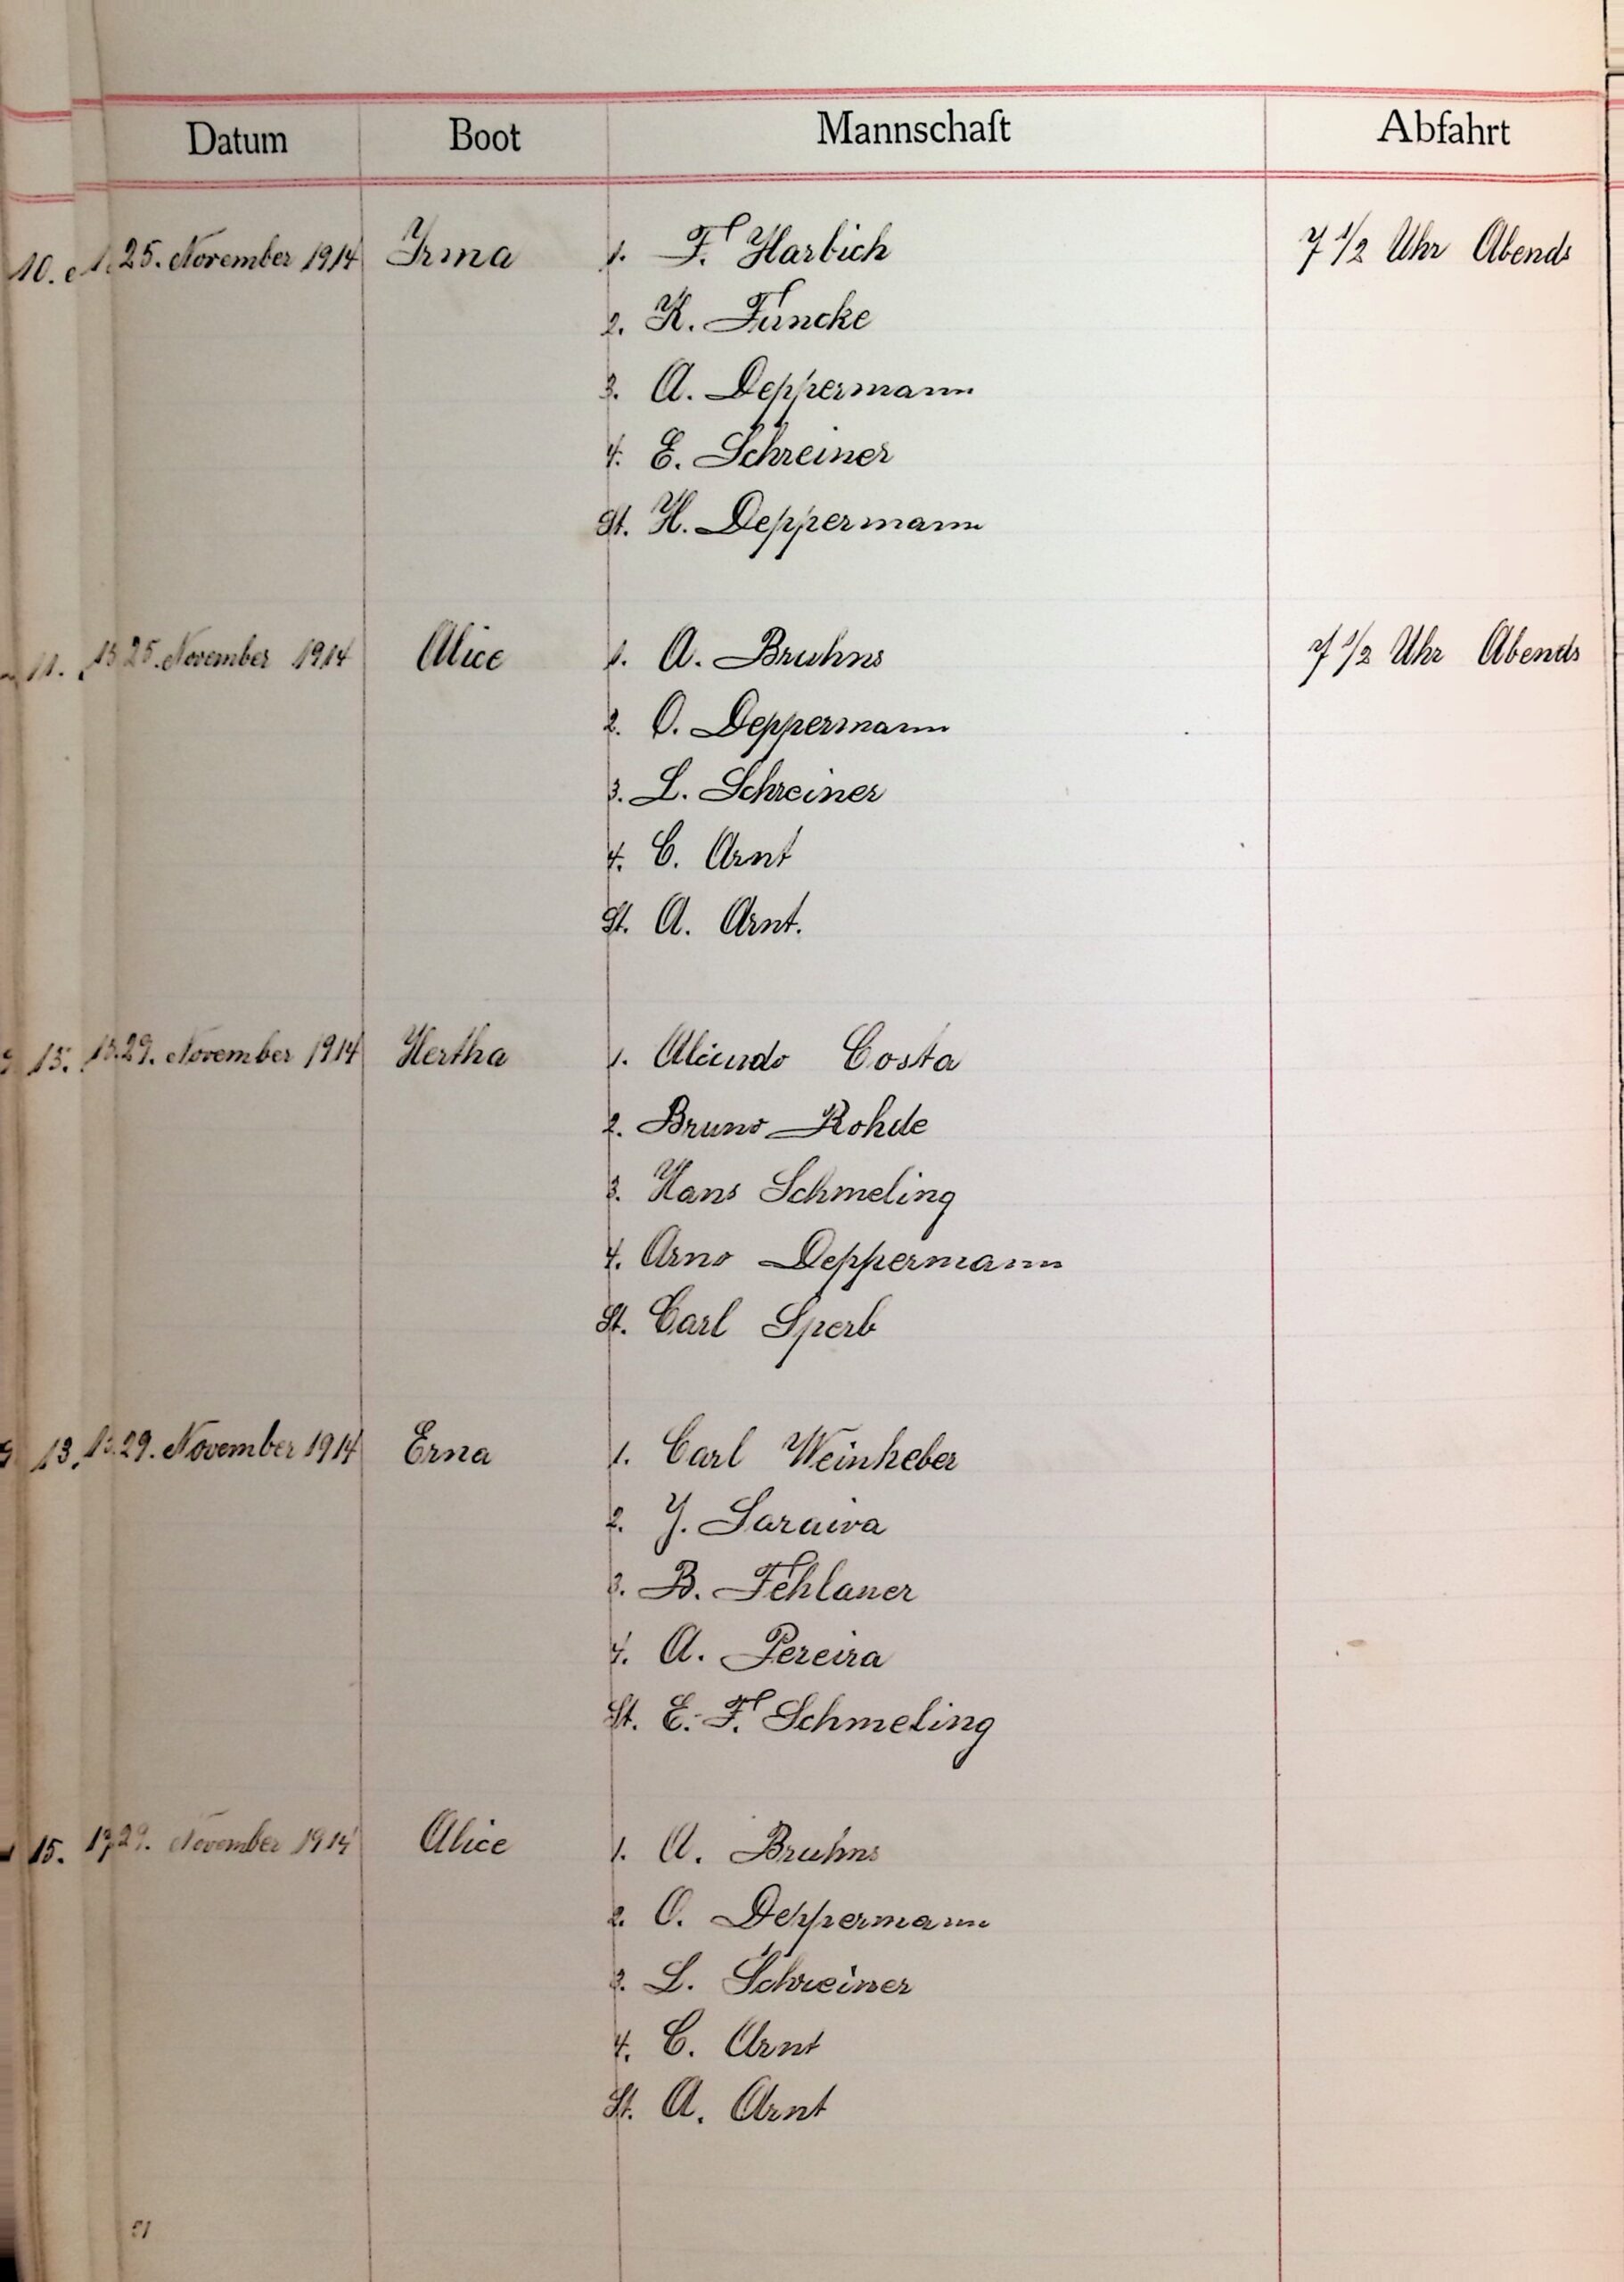 Datum Boot Mannschaft Abfahrt
25. November 1914 Irma 1. F. Harbich 7 1/2 Uhr Abends
2. K. Funcke
3. A. Deppermann
4. E. Schreiner
St. H. Deppermann
25. November 1914 Alice 1. A. Bruhns 7 1/2 Uhr Abends
2. O. Deppermann
3. L. Schreiner
4. C. Arnt
St. A. Arnt.
29. November 1914 Hertha 1. Costa
2. Bruno Rohde
3. Hans Schmeling
4. Arno Deppermann
St. Carl Sperb
29. November 1914 Erna 1. Carl Weinheber
2. J. Saraiva
3. B. Fehlauer
4. A. Pereira
St. E. F. Schmeling
29. November 1914 Alice 1. A. Bruhns
2. O. Deppermann
3. L. Schreiner
4. C. Arnt
St. A. Arnt